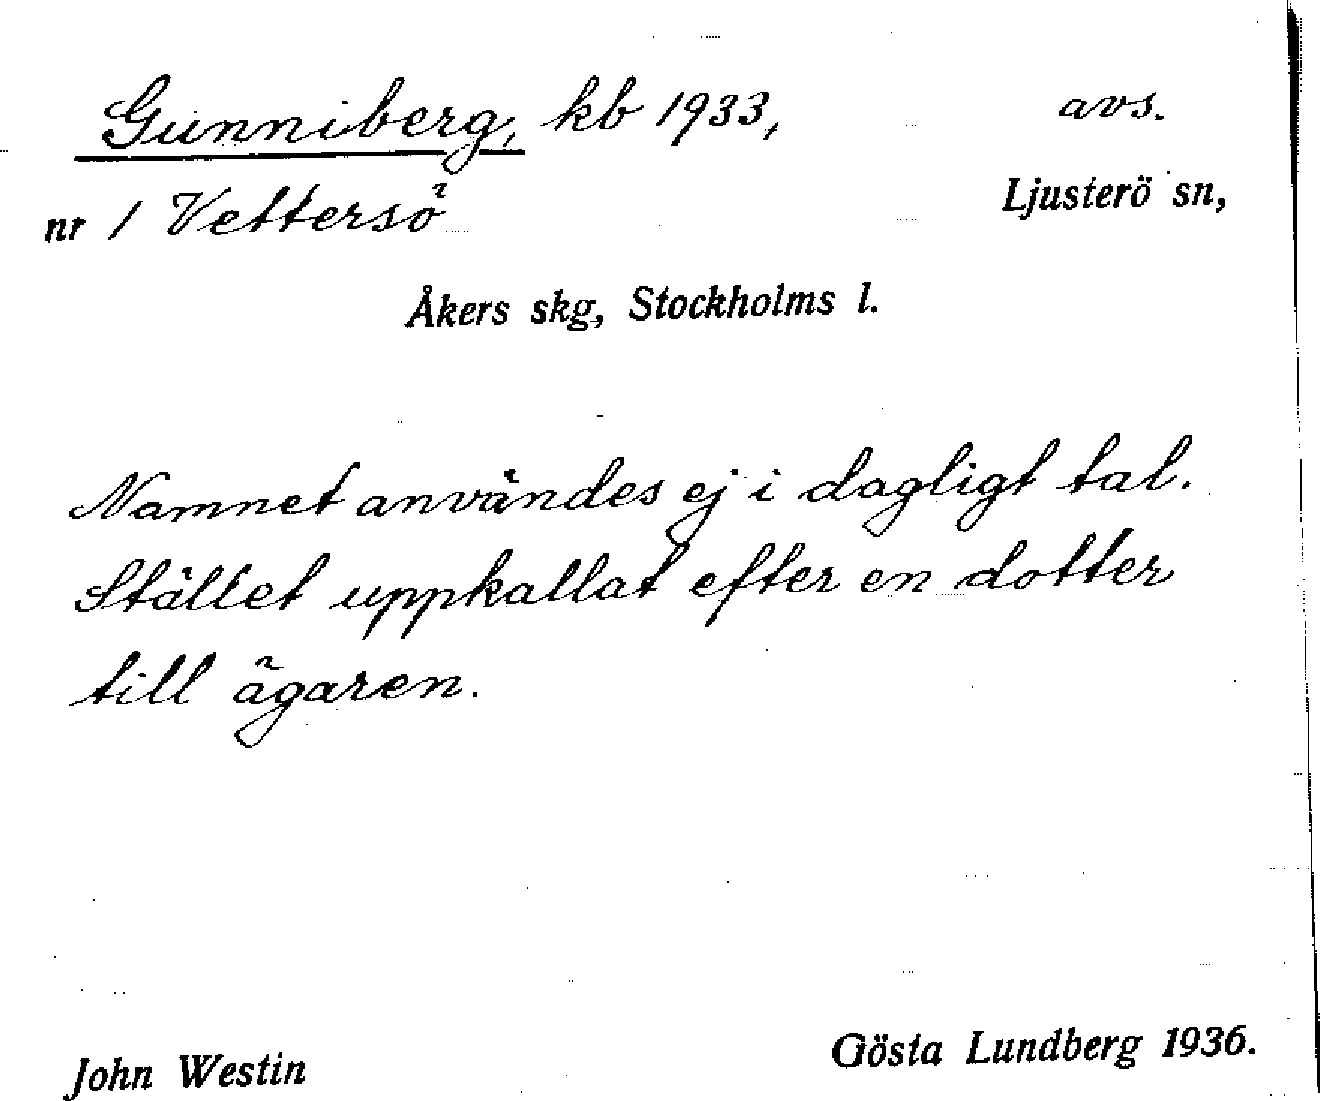 Gunniberg, kb 1933, avs.
nr 1 Vettersö Ljusterö sn,
Åkers skg, Stockholms l.
Namnet användes ej i dagligt tal.
Stället uppkallat efter en dotter
till ägaren.
John Westin Gösta Lundberg 1936.